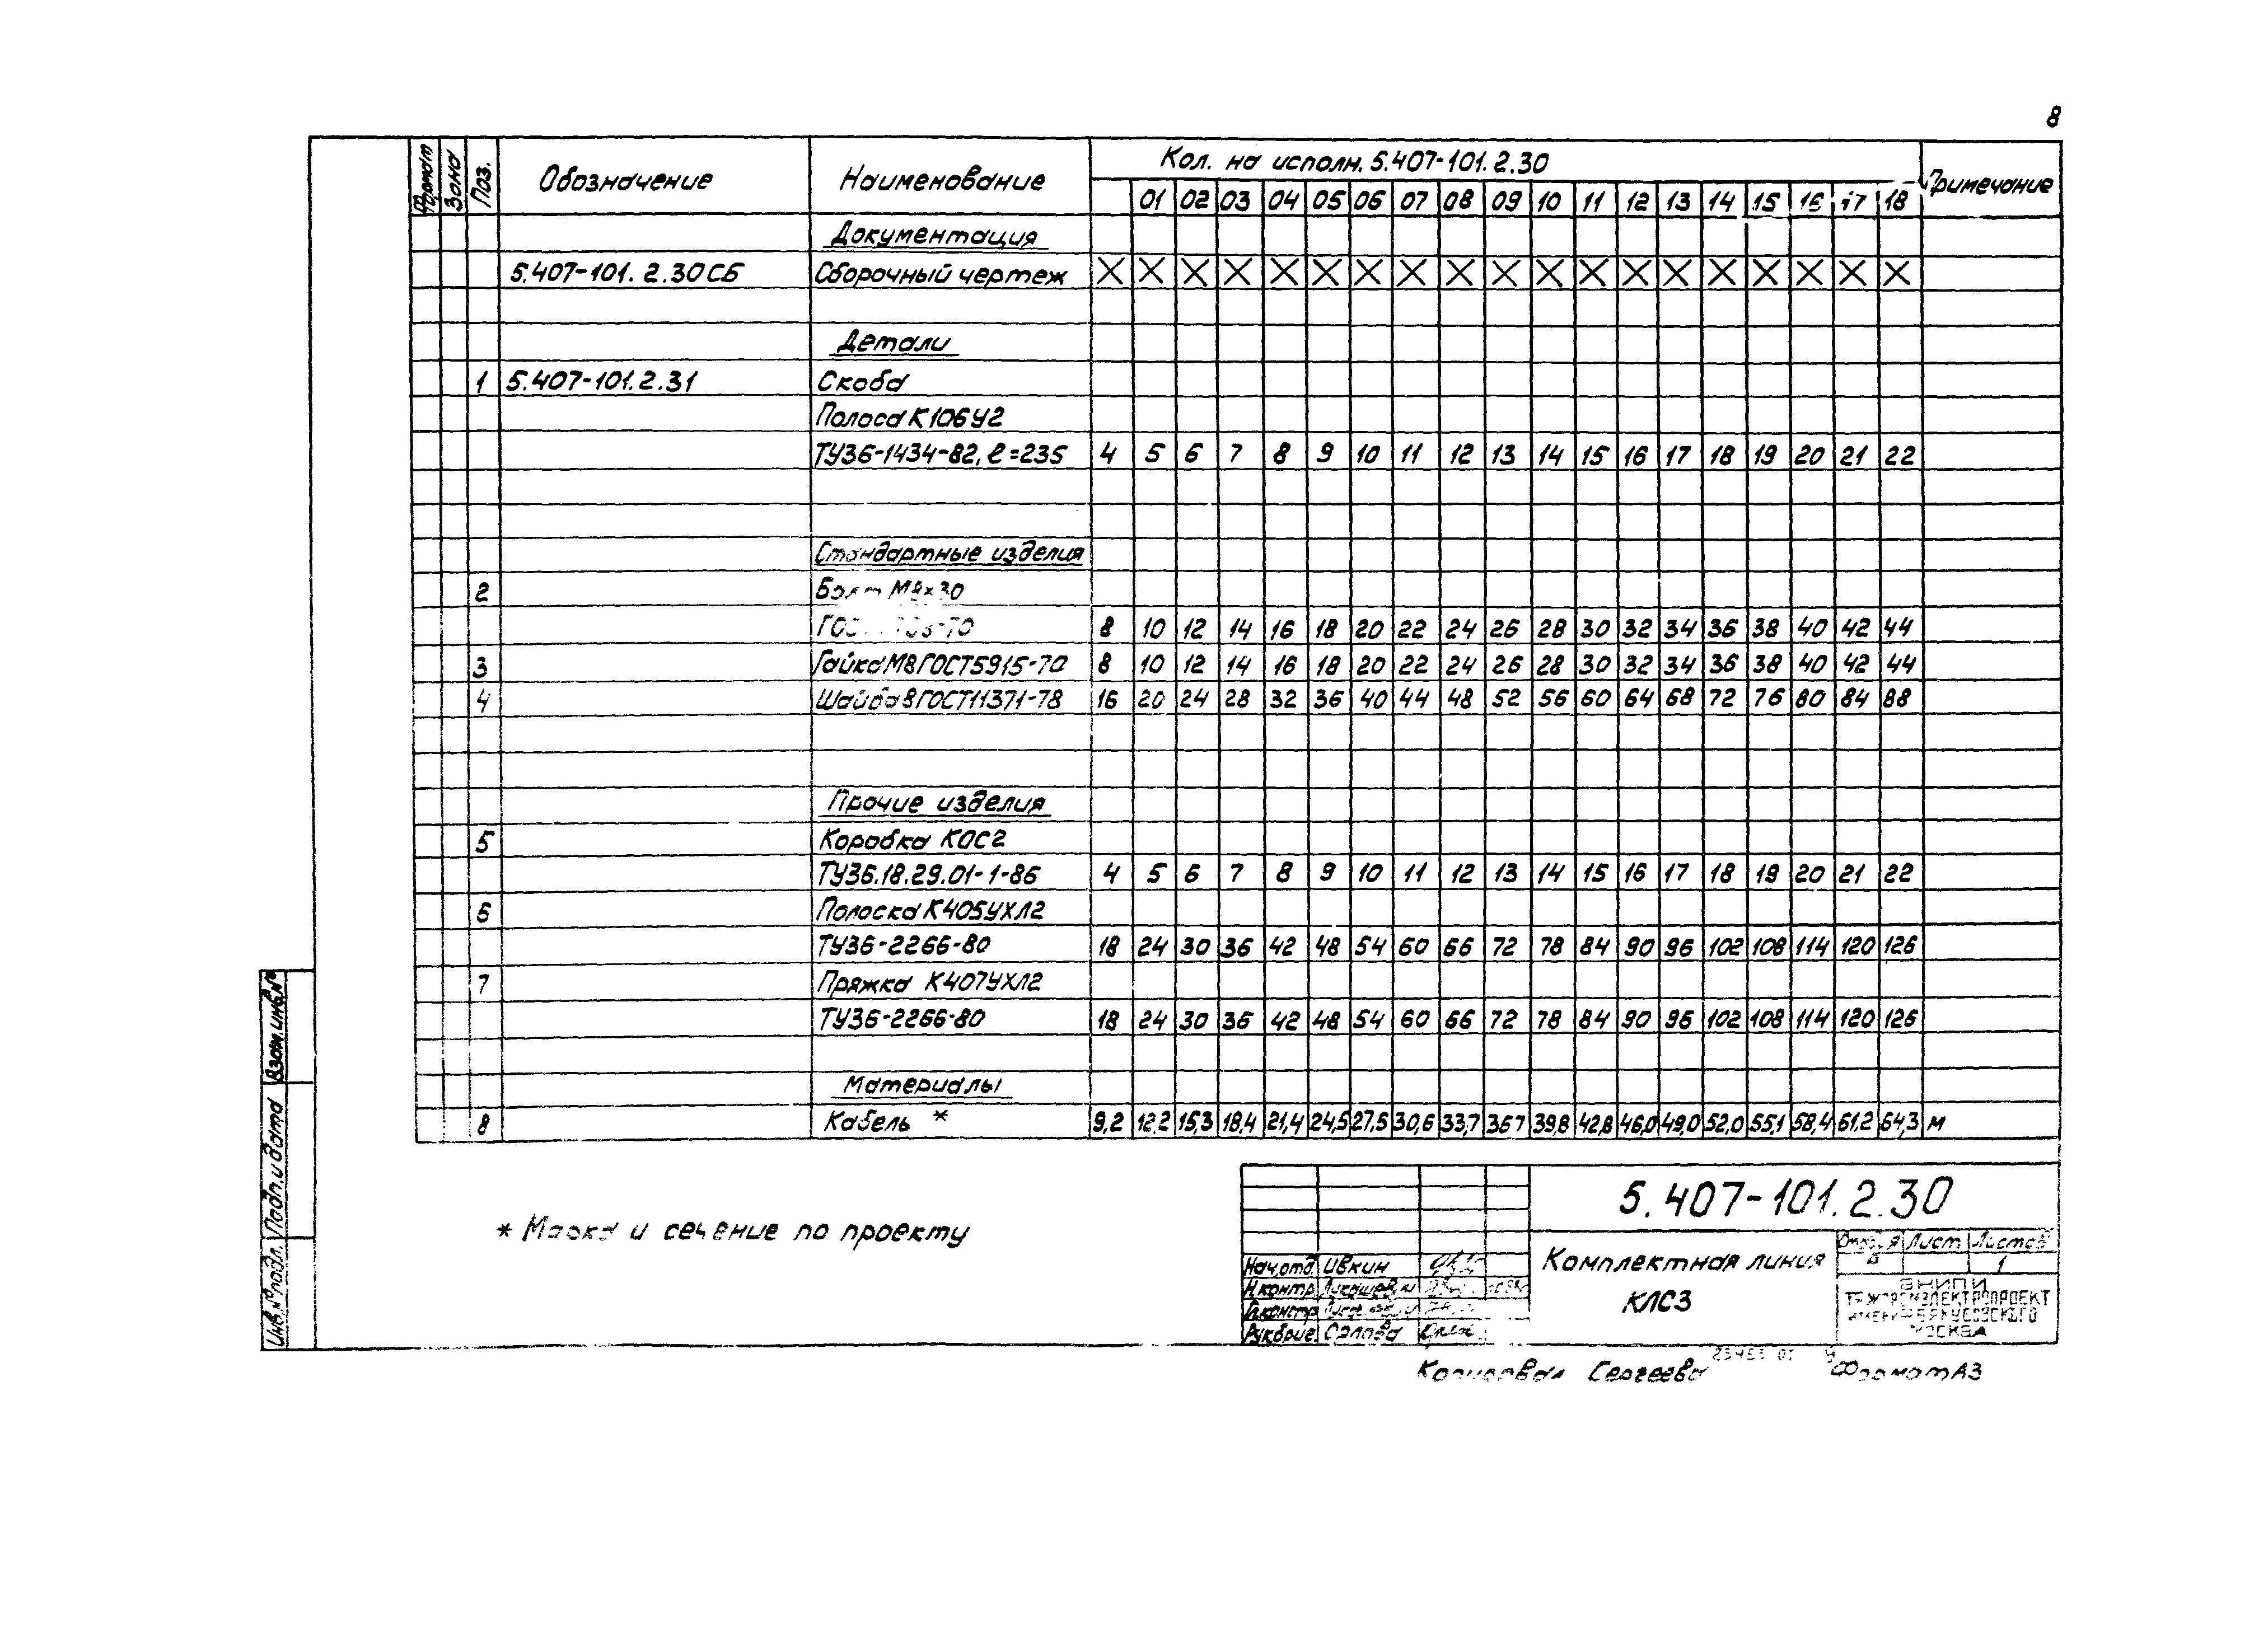 8
Формат Зона Поз. Обозначение Наименование Кол. на исполн. 5.407-101.2.30 Примечание
01 02 03 04 05 06 07 08 09 10 11 12 13 14 15 16 17 18
Документация
5.407-101.2.30СБ Сборочный чертеж X X X X X X X X X X X X X X X X X X X
Детали
1 5.407-101.2.31 Скоба
Полоса К106У2
ТУ36-1434-82, ℓ=235 4 5 6 7 8 9 10 11 12 13 14 15 16 17 18 19 20 21 22
Стандартные изделия
2 Болт М8х30
8 10 12 14 16 18 20 22 24 26 28 30 32 34 36 38 40 42 44
3 Гайка М8 ГОСТ5915-70 8 10 12 14 16 18 20 22 24 26 28 30 32 34 36 38 40 42 44
4 Шайба 8 ГОСТ11371-78 16 20 24 28 32 36 40 44 48 52 56 60 64 68 72 76 80 84 88
Прочие изделия
5 Коробка КОС2
ТУ36.18.29.01-1-86 4 5 6 7 8 9 10 11 12 13 14 15 16 17 18 19 20 21 22
6 Полоска К405УХЛ2
ТУ36-2266-80 18 24 30 36 42 48 54 60 66 72 78 84 90 96 102 108 114 120 126
7 Пряжка К407УХЛ2
ТУ36-2266-80 18 24 30 36 42 48 54 60 66 72 78 84 90 96 102 108 114 120 126
Материалы
8 Кабель * 9,2 12,2 15,3 18,4 21,4 24,5 27,5 30,6 33,7 36,7 39,8 42,8 46,0 49,0 52,0 55,1 58,4 61,2 64,3 м
* Марка и сечение по проекту
Взам.инв.№
Подп. и дата
Инв.№ подл.
5.407-101.2.30
Комплектная линия
КЛС3
Стадия Лист Листов
1
Нач.отд. Ивкин
Н.контр.
Гл.констр.
Рук.бриг.
ВНИПИ
ТЯЖПРОМЭЛЕКТРОПРОЕКТ
МОСКВА
Копировал Сергеева Формат А3